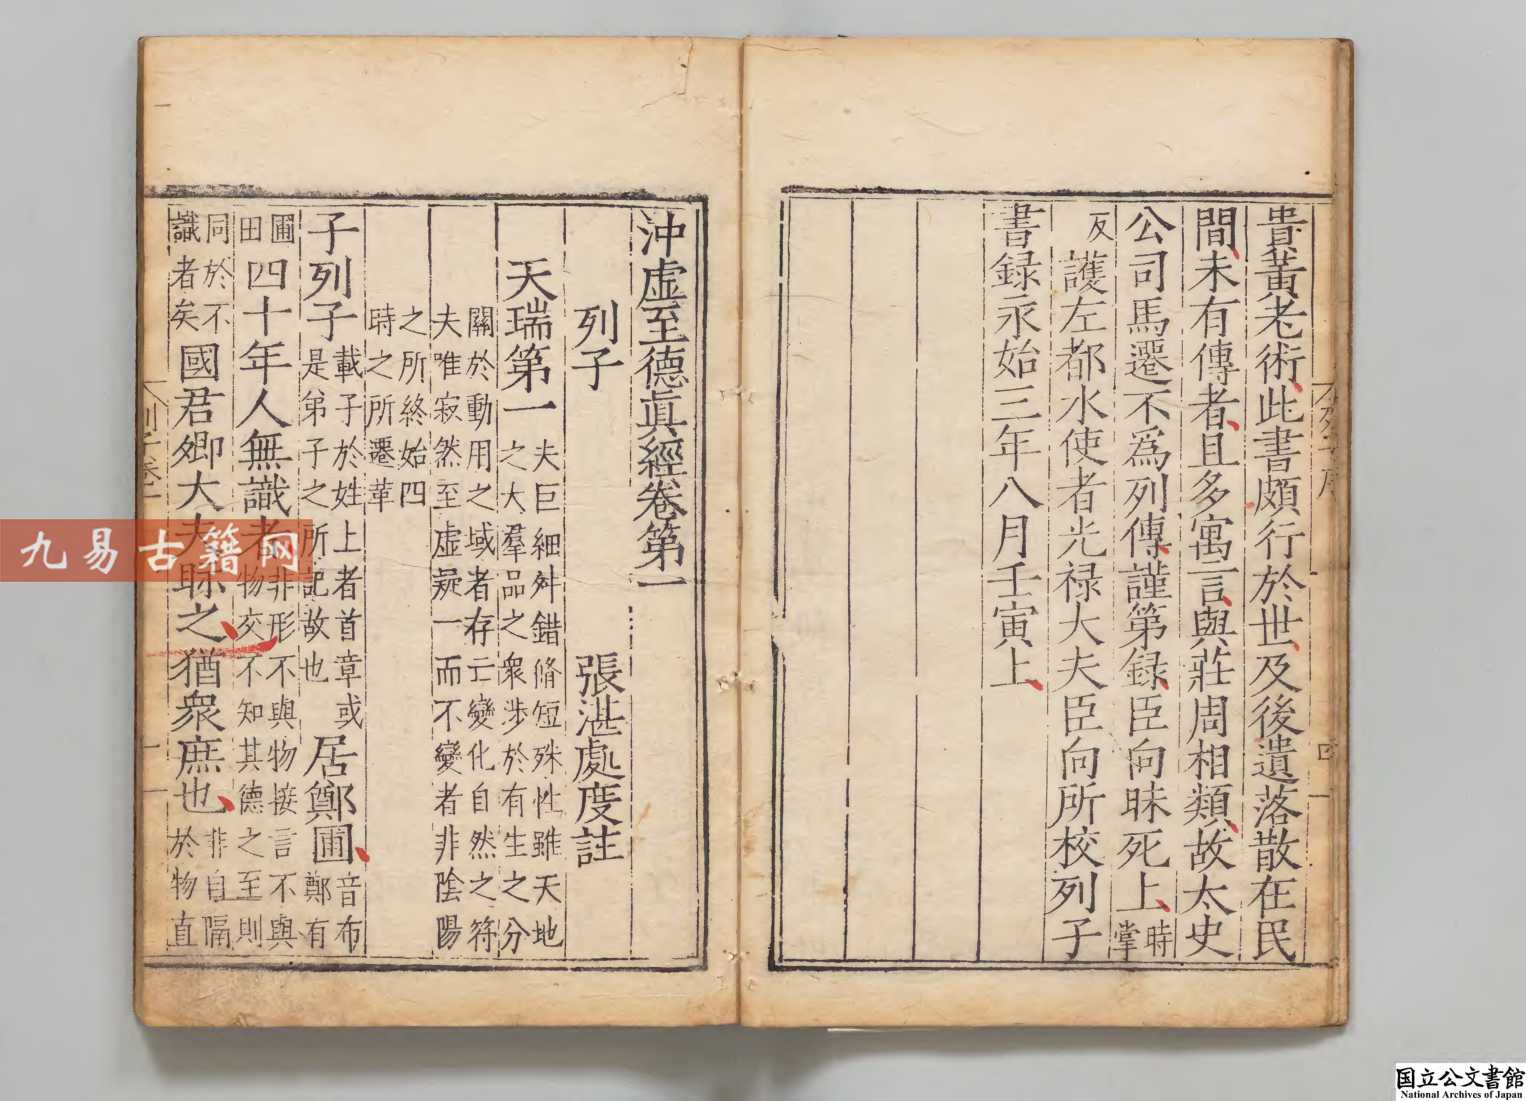 貴黃老術此書頗行於世及後遺落散在民
間未有傳者且多寓言與莊周相類故太史
公司馬遷不為列傳謹第録臣向昧死上時掌
反護左都水使者光禄大夫臣向所校列子
書録永始三年八月壬寅上
四
沖虛至德眞經卷第一
列子 張湛處度註
天瑞第一夫巨細舛錯脩短殊性雖天地之大羣品之衆涉於有生之分
關於動用之域者存亡變化自然之符夫唯寂然至虛凝一而不變者非陰陽
之所終始四時之所遷革
子列子載子於姓上者首章或是弟子之所記故也居鄭圃音布鄭有
圃田四十年人無識者非形不與物接言不與物交不知其德之至則
同於不識者矣國君卿大夫眎之猶衆庶也非自隔於物直
列子卷一
一
九易古籍网
国立公文書館
National Archives of Japan